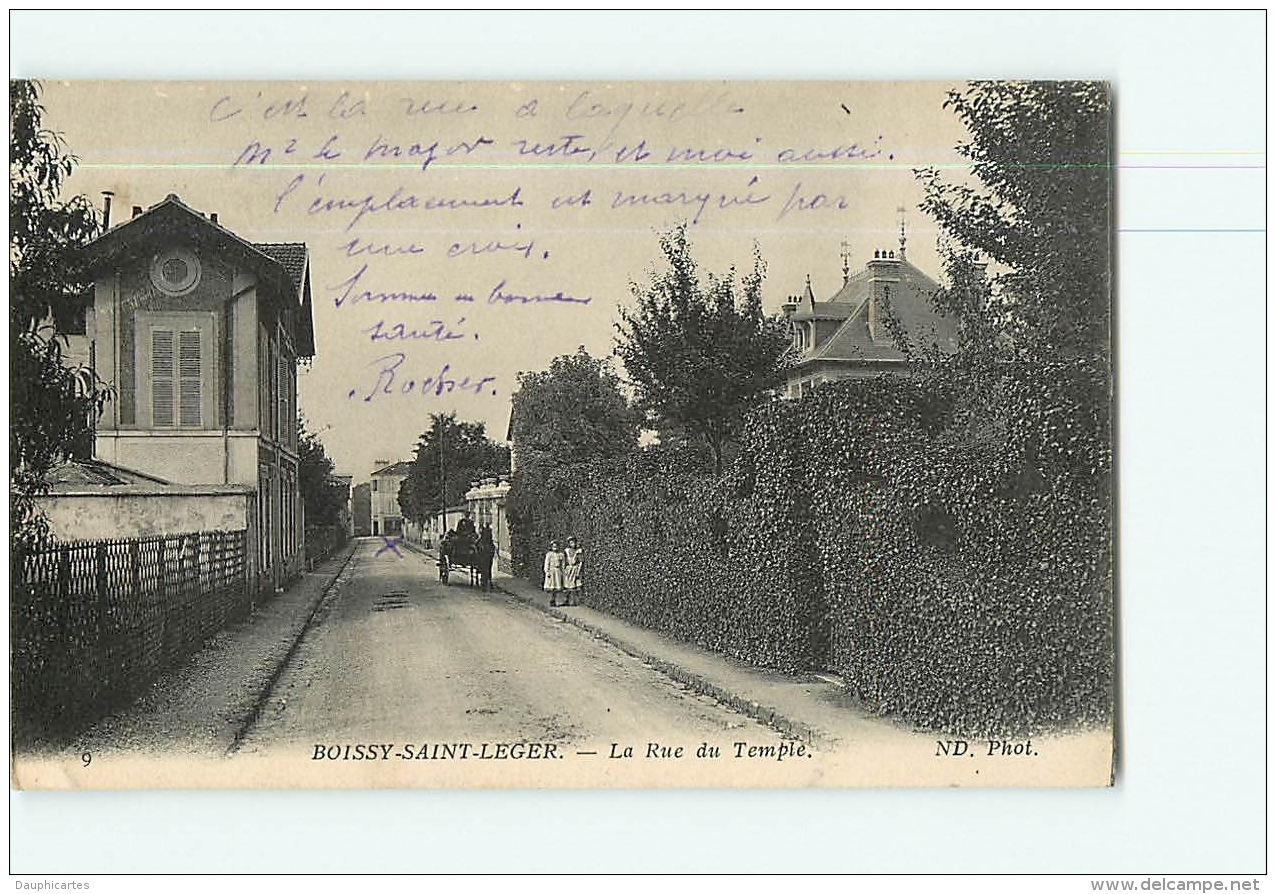 C'est la rue à laquelle
Mr le major reste, et moi aussi.
l'emplacement est marqué par
une croix.
Sommes en bonne
santé.
Rocher.
9
BOISSY-SAINT-LEGER. — La Rue du Temple.
ND. Phot.
Dauphicartes
www.delcampe.net